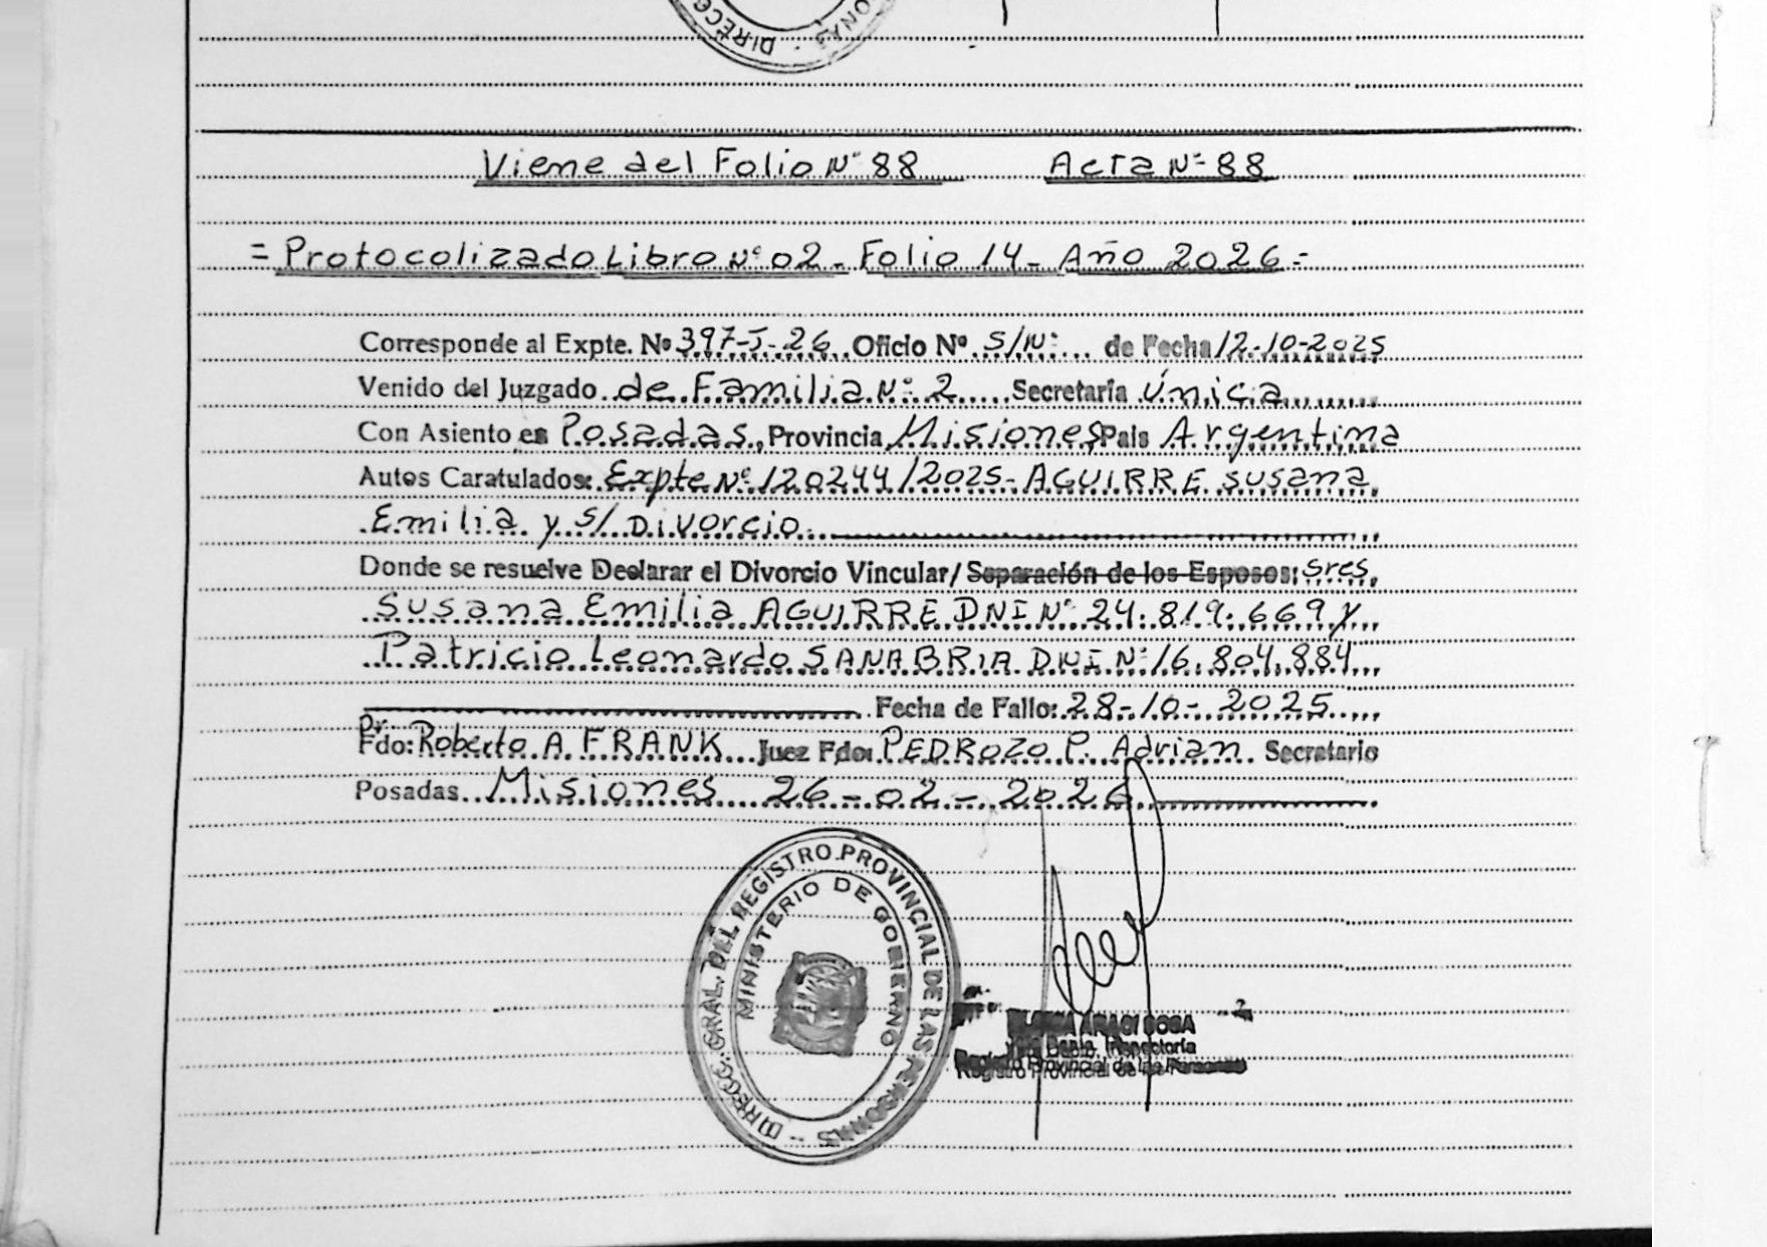 DIRECC
ONAS -
Viene del Folio Nº 88 Acta Nº 88
= Protocolizado Libro Nº 02 - Folio 14 - Año 2026 =
Corresponde al Expte. Nº 397-J-26 Oficio Nº S/Nº de Fecha 12-10-2025
Venido del Juzgado de Familia Nº 2 Secretaría Única
Con Asiento en Posadas, Provincia Misiones País Argentina
Autos Caratulados: Expte Nº 120244/2025 - AGUIRRE Susana
Emilia y s/ Divorcio
Donde se resuelve Declarar el Divorcio Vincular/ Separación de los Esposos: Sres.
Susana Emilia AGUIRRE DNI Nº 24.819.669 y
Patricio Leonardo SANABRIA DNI Nº 16.804.884
Fecha de Fallo: 28-10-2025
Fdo: Dr. Roberto A. FRANK Juez Fdo: PEDROZO P. Adrian Secretario
Posadas Misiones 26-02-2026
DIRECC. GRAL. DEL REGISTRO PROVINCIAL DE LAS PERSONAS -
MINISTERIO DE GOBIERNO
Dpto. Inspectoría
Registro Provincial de las Personas